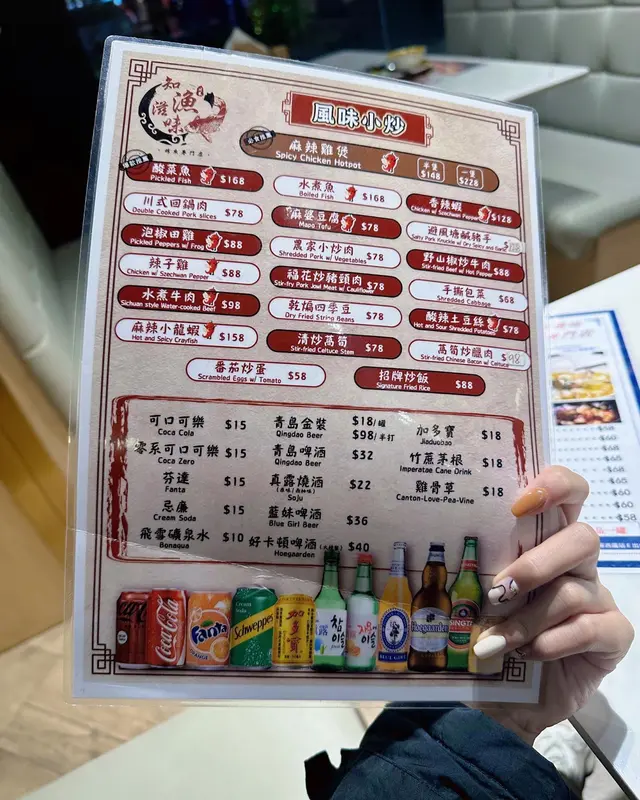 知
漁
滋
味
風味小炒
麻辣雞煲
Spicy Chicken Hotpot
半煲
$148
一煲
$228
酸菜魚
Pickled Fish
$168
水煮魚
Boiled Fish
$168
香辣蝦
Chicken w/ Szechwan Pepper
$128
川式回鍋肉
Double Cooked Pork slices
$78
麻婆豆腐
Mapo Tofu
$78
避風塘鹹豬手
Salty Pork Knuckle w/ Dry Spicy and Garlic
泡椒田雞
Pickled Peppers w/ Frog
$88
農家小炒肉
Shredded Pork w/ Vegetables
$78
野山椒炒牛肉
Stir-fried Beef w/ Hot Pepper
$88
辣子雞
Chicken w/ Szechwan Pepper
$88
福花炒豬頸肉
Stir-fry Pork Jowl Meat w/ Cauliflower
$78
手撕包菜
Shredded Cabbage
$68
水煮牛肉
Sichuan style Water-cooked Beef
$98
乾煸四季豆
Dry Fried String Beans
$78
酸辣土豆絲
Hot and Sour Shredded Potatoes
$78
麻辣小龍蝦
Hot and Spicy Crayfish
$158
清炒萵筍
Stir-fried Celtuce Stem
$78
萵筍炒臘肉
Stir-fried Chinese Bacon w/ Celtuce
$98
番茄炒蛋
Scrambled Eggs w/ Tomato
$58
招牌炒飯
Signature Fried Rice
$88
可口可樂
Coca Cola
$15
零系可口可樂
Coca Zero
$15
芬達
Fanta
$15
忌廉
Cream Soda
$15
飛雪礦泉水
Bonaqua
$10
青島金裝
Qingdao Beer
$18/罐
$98/半打
青島啤酒
Qingdao Beer
$32
真露燒酒
Soju
$22
藍妹啤酒
Blue Girl Beer
$36
好卡頓啤酒
Hoegaarden
$40
加多寶
Jiaduobao
$18
竹蔗茅根
Imperatae Cane Drink
$18
雞骨草
Canton-Love-Pea-Vine
$18
Coca-Cola
Fanta
Cream Soda
Schweppes
加多寶
참이슬
Hoegaarden
TSINGTAO
$58
$60
$68
$65
$60
$60
$58